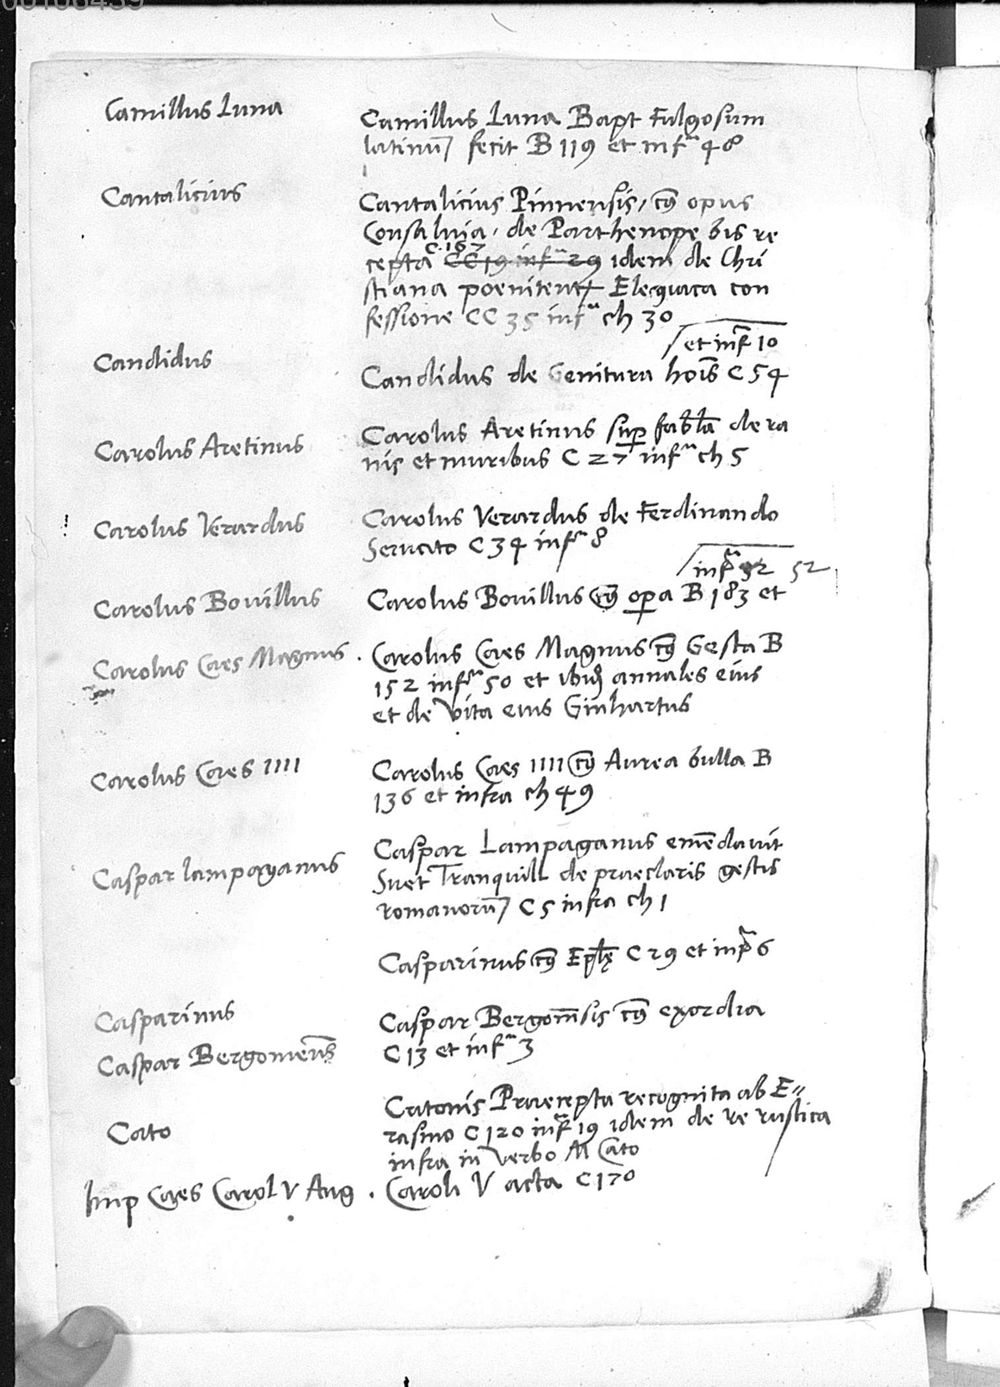 Camillus Luna
Camillus Luna Bapt Fulgosum
latinu fecit B 119 et infra 48
Cantalicius
Cantalicius Pinnensis, cu opus
Consaluia, de Parthenope bis re
C. 167
cepta CC 19 infra 29 idem de Chri
stiana poenitent Elequaca con
fessione CC 35 infra ch 30
et infr 10
Candidus
Candidus de Genitura hois C 54
Carolus Aretinus
Carolus Aretinus sup fabla de ra
nis et muribus C 27 infra ch 5
Carolus Verardus
Carolus Verardus de Ferdinando
Seruato C 34 infra 8
infra 52
Carolus Bouillus
Carolus Bouillus cu opa B 183 et
Carolus Caes Magnus
Carolus Caes Magnus cu Gesta B
152 infra 50 et ibid annales eius
et de Vita eius Ginhartus
Carolus Caes IIII
Carolus Caes IIII cu Aurea bulla B
136 et infra ch 49
Caspar Lampaganus
Caspar Lampaganus emēdauit
Suet Tranquill de praeclaris gestis
romanoru C 5 infra ch 1
Casparinus cu Eplę C 29 et infra 6
Casparinus
Caspar Bergomēsis cu exordia
Caspar Bergomens
C 13 et infra 3
Catonis Praecepta recognita ab E=
Cato
rasmo C 120 infra 19 idem de re rustica
infra in verbo M Cato
Imp Caes Carol V Aug . Caroli V acta C 170